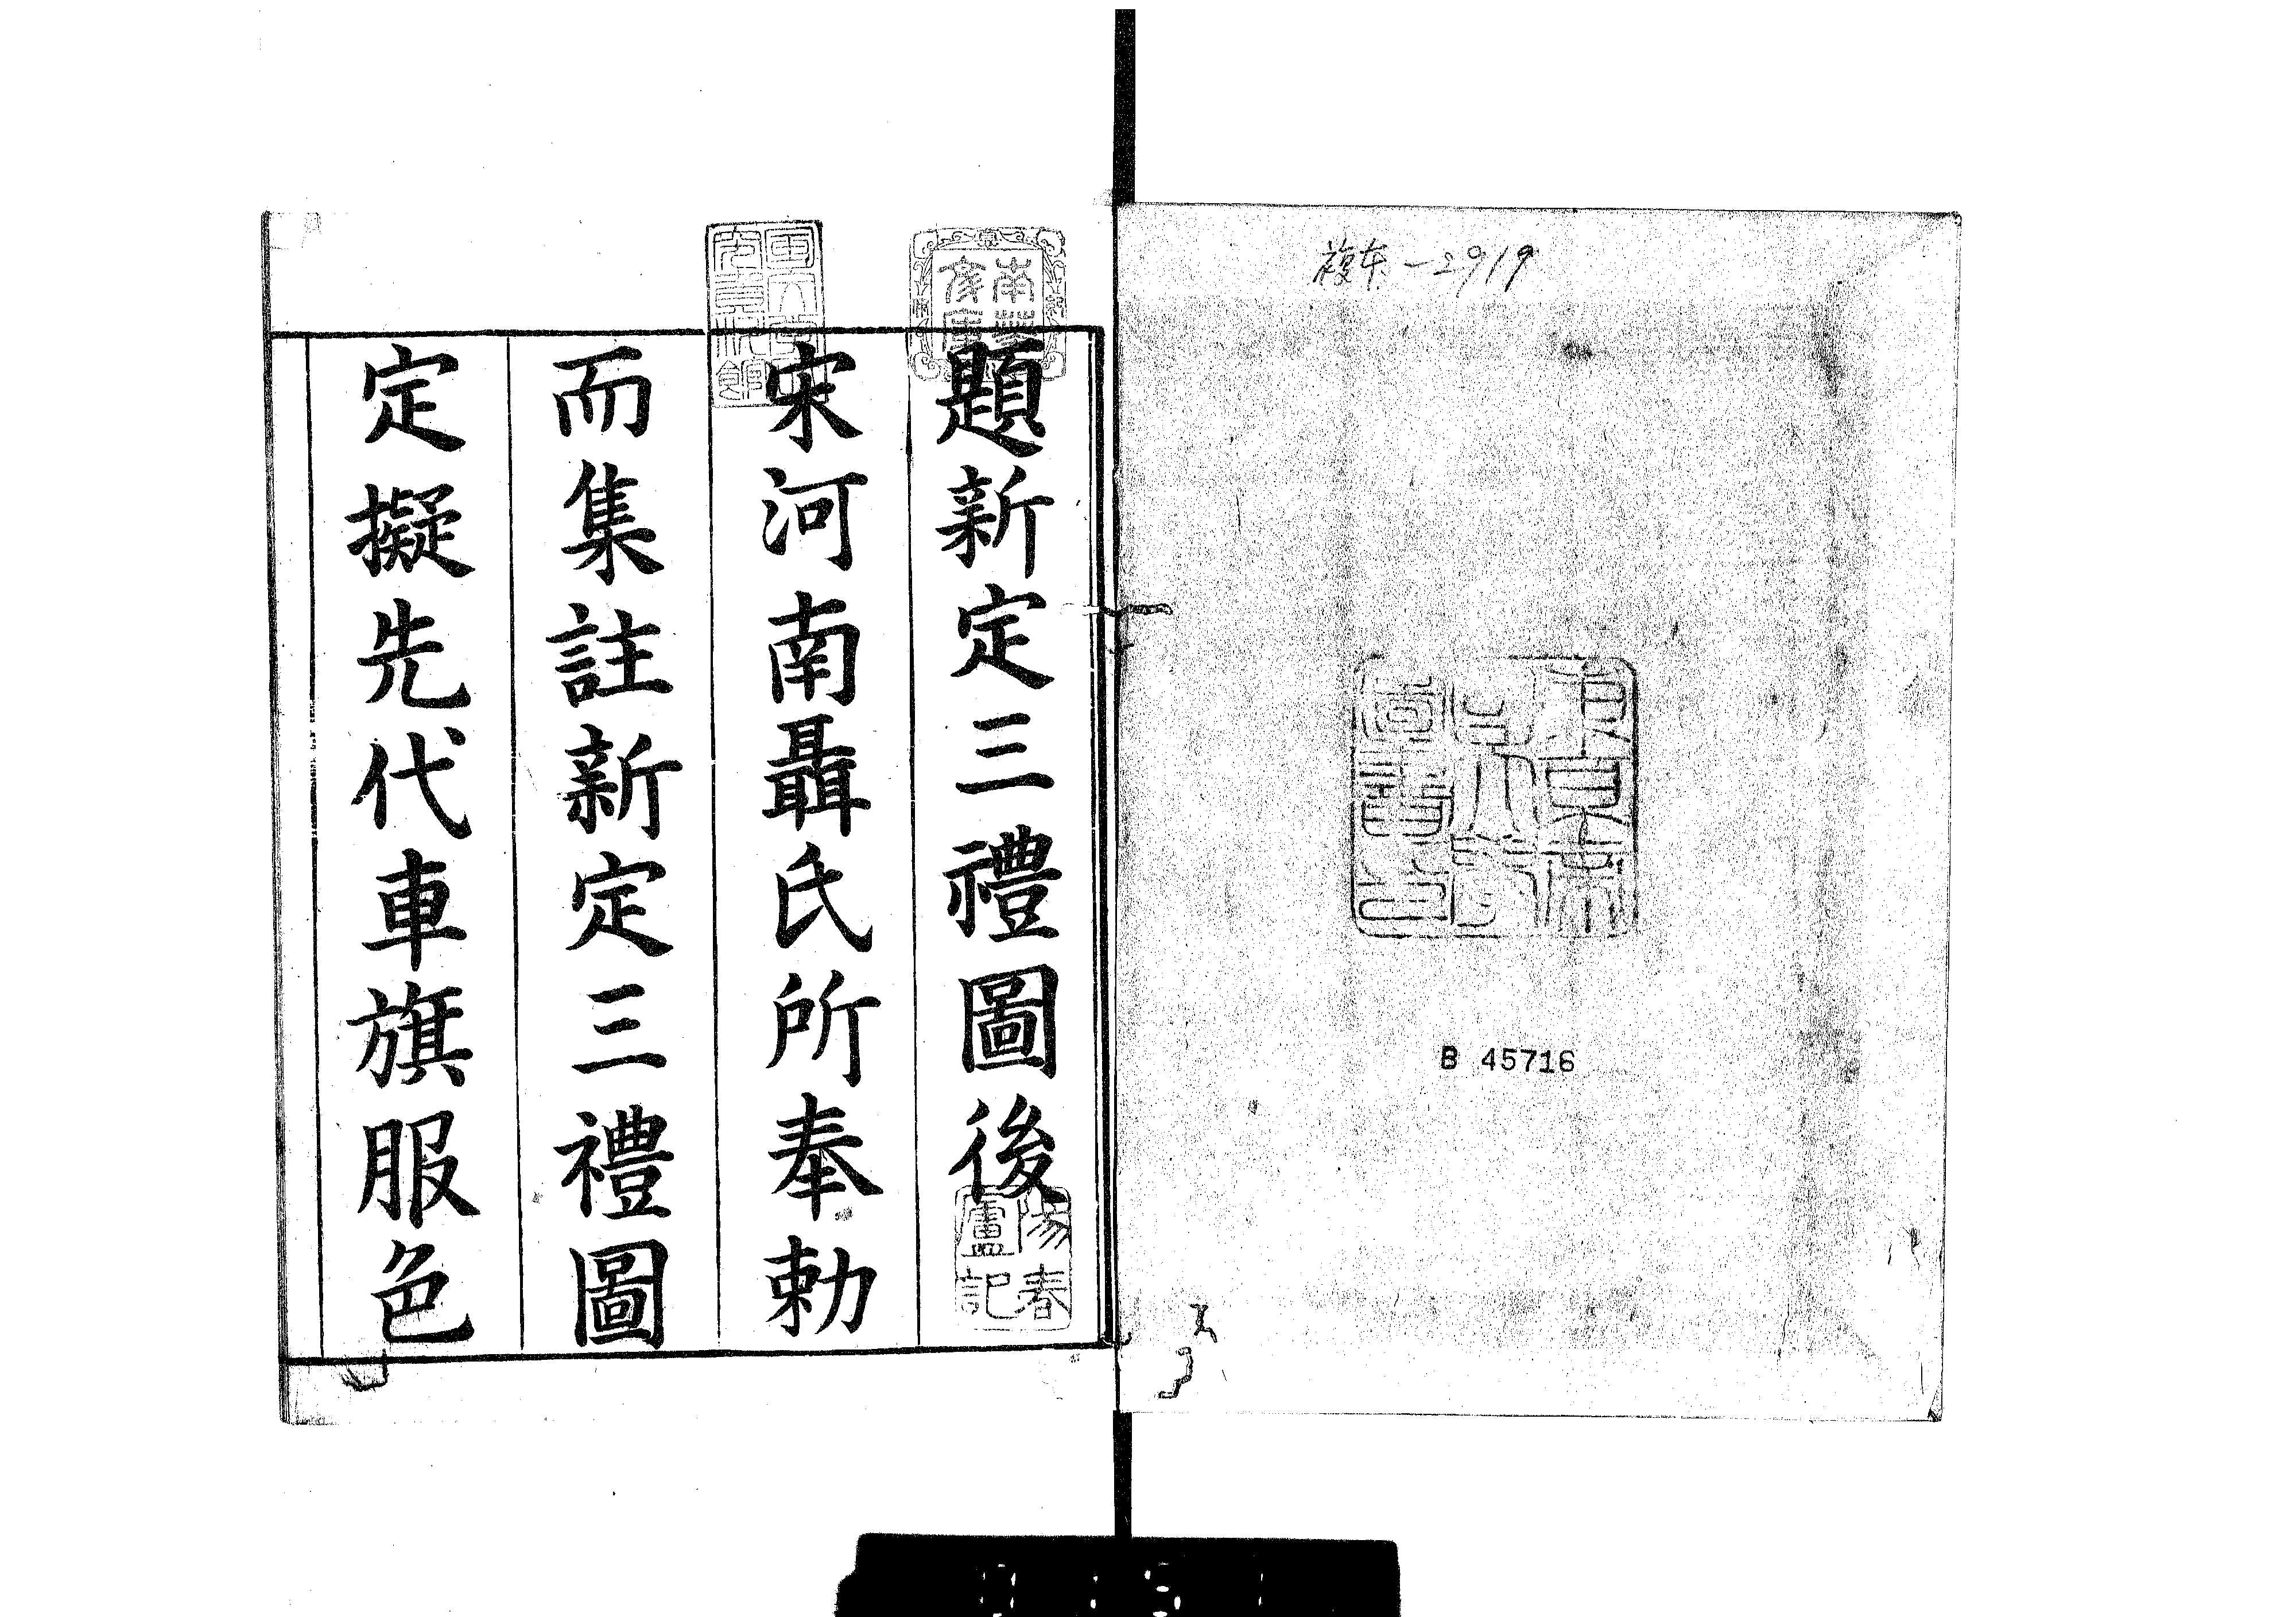 複本-2919
B 45716
題新定三禮圖後
宋河南聶氏所奉勅
而集註新定三禮圖
定擬先代車旗服色
陽春
廬記